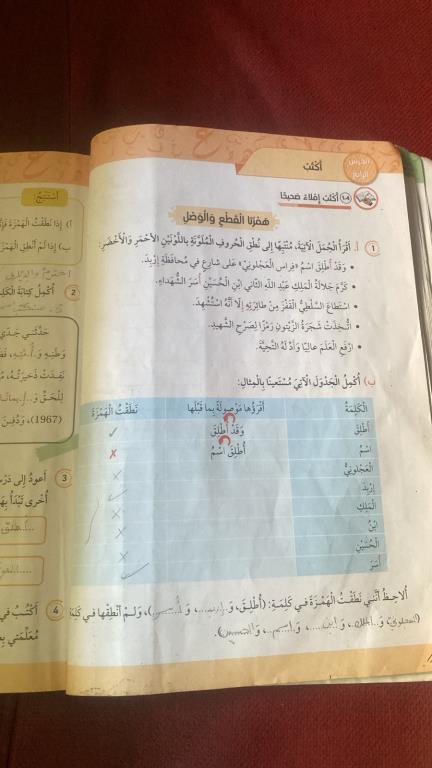 الدرس الرابع
أكتب
١.٤ أكتب إملاء صحيحًا
همزتا القطع والوصل
1 أ. أقرأ الجمل الآتية، متنبّهًا إلى نطق الحروف الملوّنة باللّونين الأحمر والأخضر:
• وقد أُطلق اسم «فراس العجلوني» على شارع في محافظة إربد.
• كرّم جلالة الملك عبد الله الثاني ابن الحسين أسر الشهداء.
• استطاع السلطي القفز من طائرته إلا أنّه استُشهد.
• اتُّخذت شجرة الزيتون رمزًا لصرح الشهيد.
• ارفع العلم عاليًا وأدّ له التحيّة.
ب) أكمل الجدول الآتي مستعينًا بالمثال:
الكلمة أقرؤها موصولة بما قبلها نطقت الهمزة
أُطلق وقد أُطلق ✓
اسم أُطلق اسم ✗
العجلوني ×
إربد ✓
الملك ×
ابن ×
الحسين ×
أسر ✓
ألاحظ أنّني نطقت الهمزة في كلمة: (أُطلق، و إربد، و أسر)، ولم أنطقها في كلمة
(العجلوني، و الملك، و ابن، و اسم، و الحسين).
أستنتج
أ) إذا نطقت الهمزة
ب) إذا لم أنطق الهمزة
2 أكمل كتابة
حدّثني جدّي
(1967)، ودُفن
3 أعود إلى
أخرى تبدأ
4 أكتب في
معلّمتي